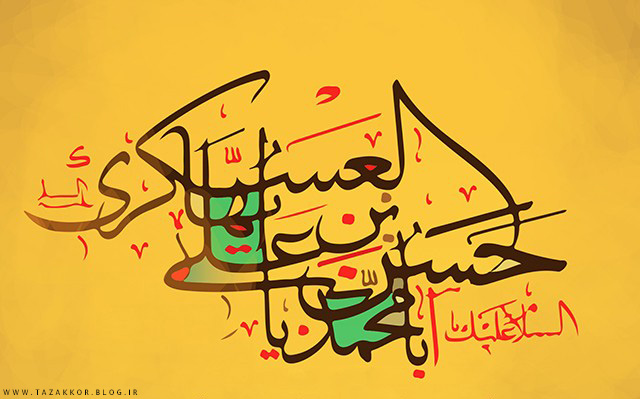 السلام علیک یا
أبا محمد یا
حسن بن علی
أیها العسکری
WWW.TAZAKKOR.BLOG.IR